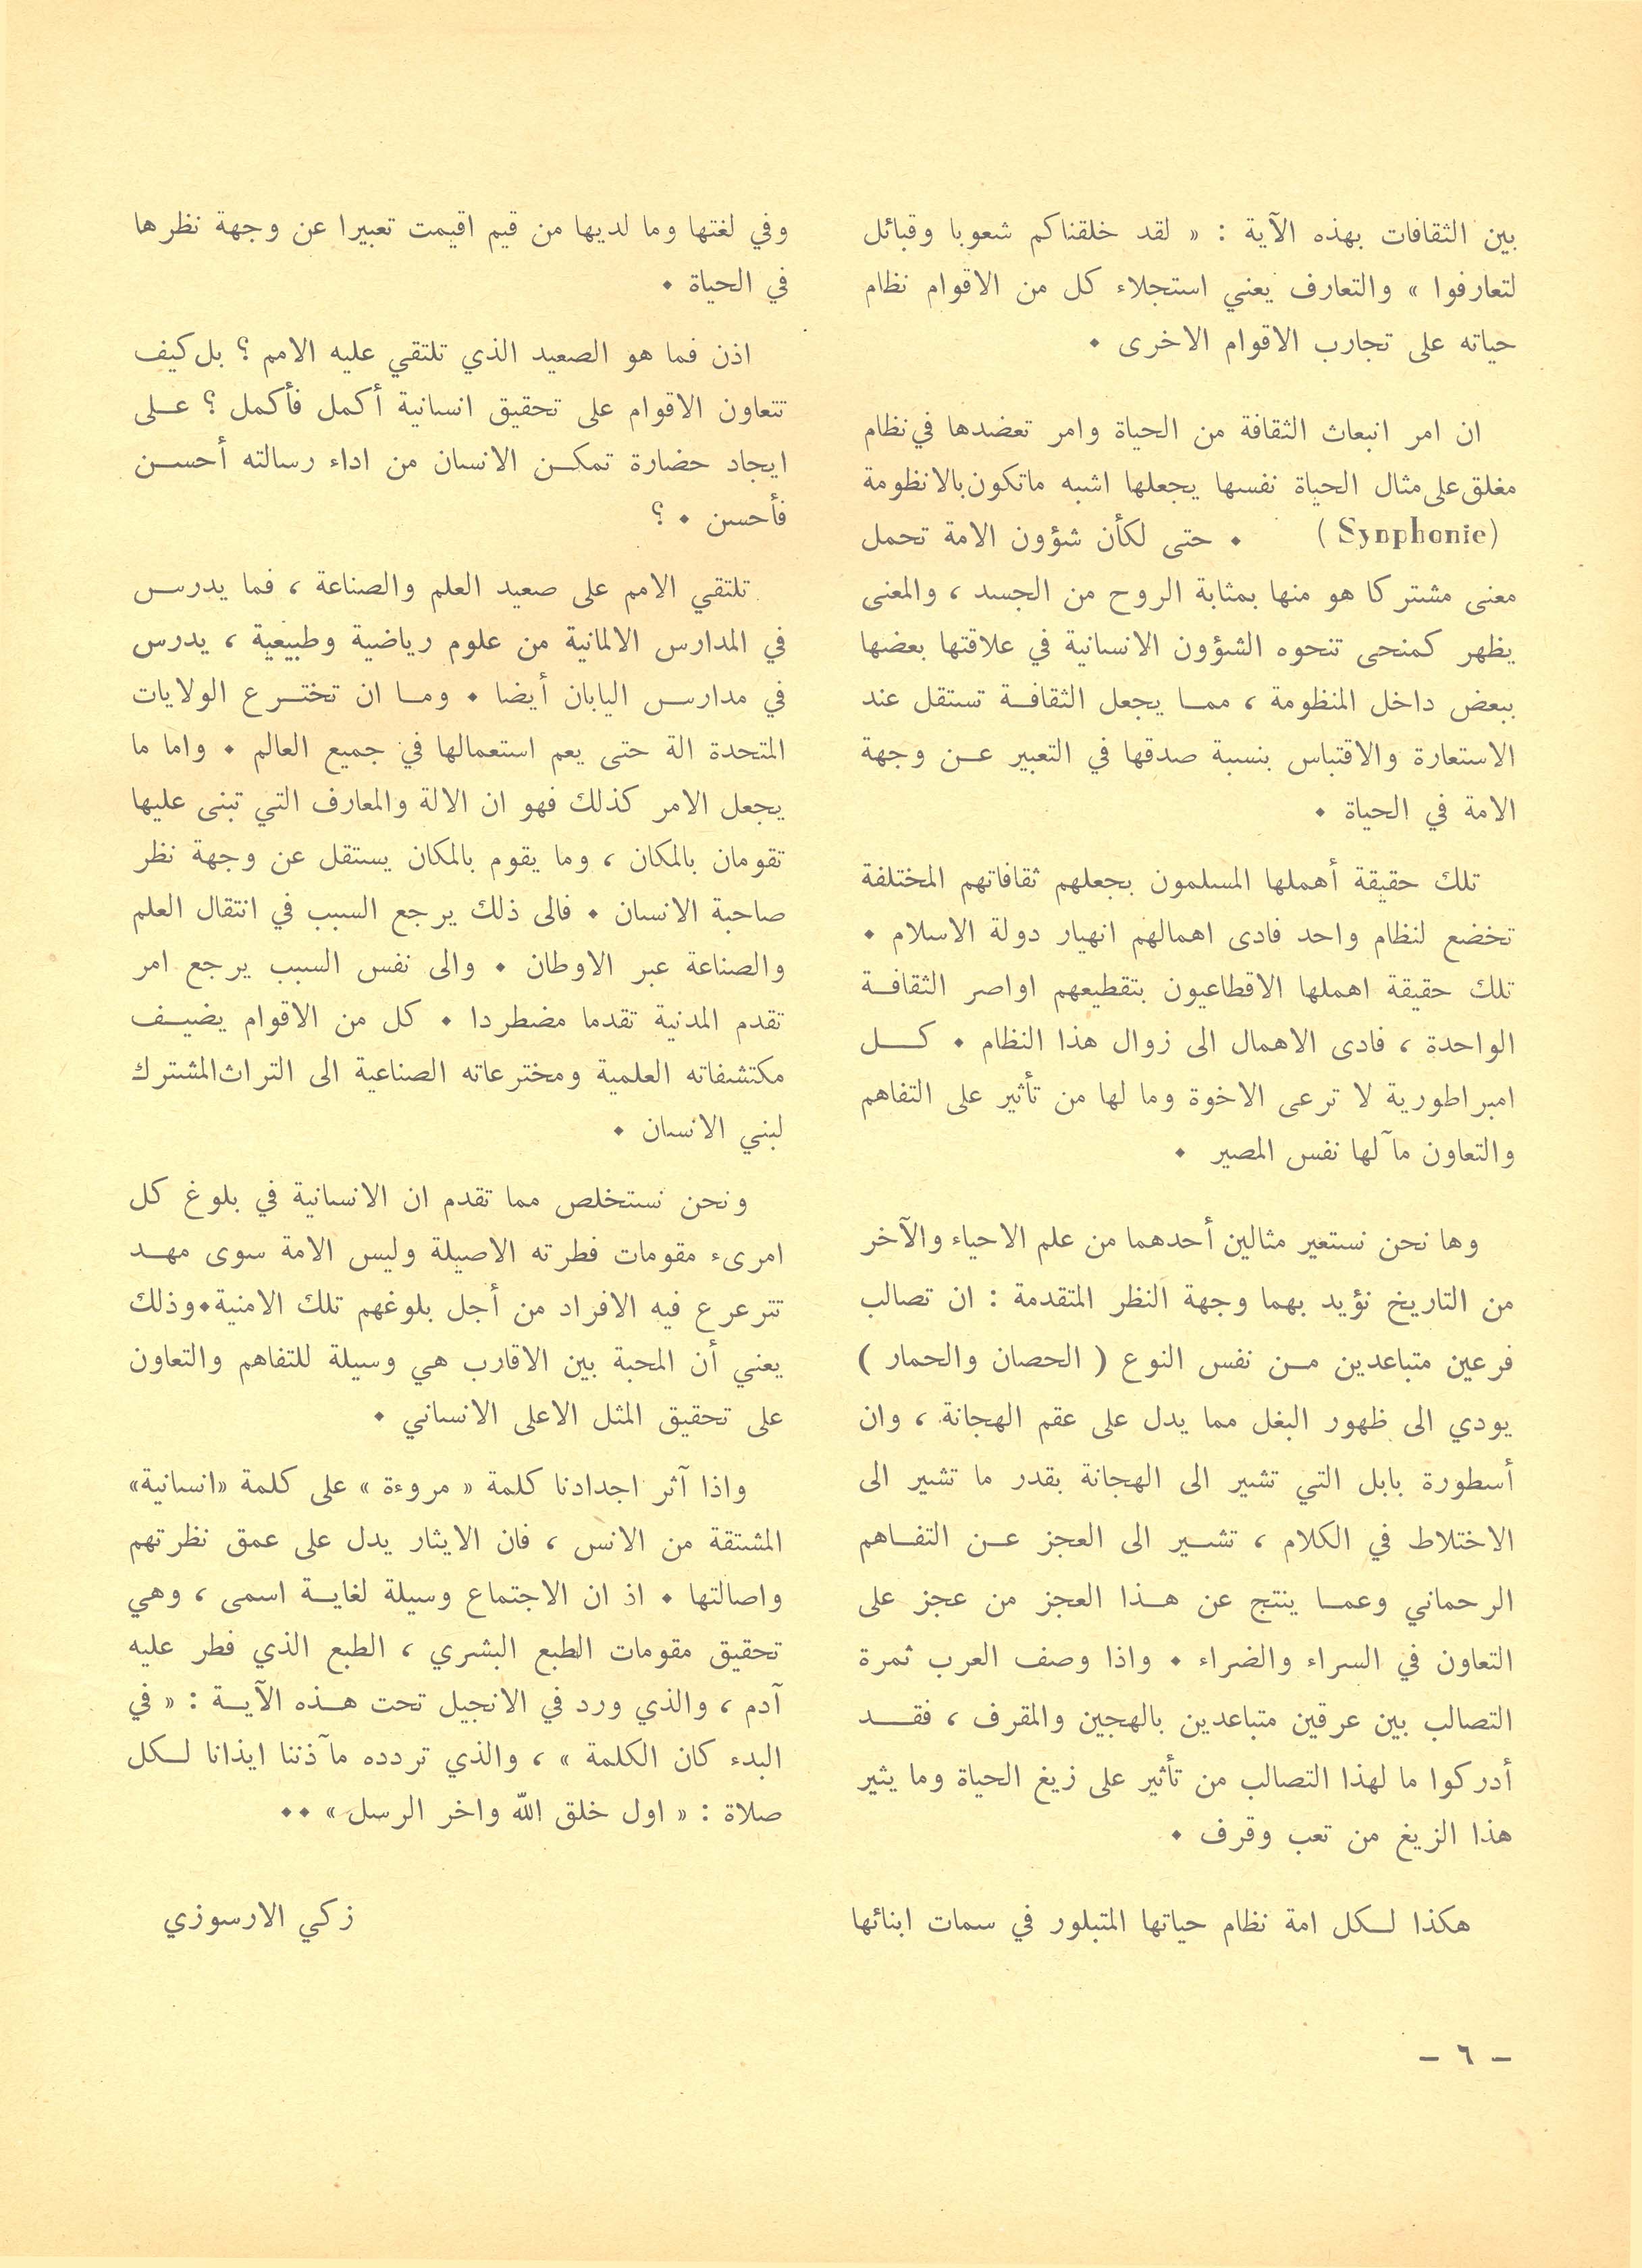 بين الثقافات بهذه الآية : « لقد خلقناكم شعوبا وقبائل
لتعارفوا » والتعارف يعني استجلاء كل من الاقوام نظام
حياته على تجارب الاقوام الاخرى ٠
ان امر انبعاث الثقافة من الحياة وامر تعضدها في نظام
مغلق على مثال الحياة نفسها يجعلها اشبه ماتكون بالانظومة
(Synphonie) ٠ حتى لكأن شؤون الامة تحمل
معنى مشتركا هو منها بمثابة الروح من الجسد ، والمعنى
يظهر كمنحى تنحوه الشؤون الانسانية في علاقتها بعضها
ببعض داخل المنظومة ، ممـا يجعل الثقافـة تستقل عند
الاستعارة والاقتباس بنسبة صدقها في التعبير عـن وجهة
الامة في الحياة ٠
تلك حقيقة أهملها المسلمون بجعلهم ثقافاتهم المختلفة
تخضع لنظام واحد فادى اهمالهم انهيار دولة الاسلام ٠
تلك حقيقة اهملها الاقطاعيون بتقطيعهم اواصر الثقافـة
الواحدة ، فادى الاهمال الى زوال هذا النظام ٠ كـــل
امبراطورية لا ترعى الاخوة وما لها من تأثير على التفاهم
والتعاون مآلها نفس المصير ٠
وها نحن نستعير مثالين أحدهما من علم الاحياء والآخر
من التاريخ نؤيد بهما وجهة النظر المتقدمة : ان تصالب
فرعين متباعدين مـن نفس النوع ( الحصان والحمار )
يودي الى ظهور البغل مما يدل على عقم الهجانة ، وان
أسطورة بابل التي تشير الى الهجانة بقدر ما تشير الى
الاختلاط في الكلام ، تشـير الى العجز عـن التفـاهم
الرحماني وعمـا ينتج عن هـذا العجز من عجز على
التعاون في السراء والضراء ٠ واذا وصف العرب ثمرة
التصالب بين عرقين متباعدين بالهجين والمقرف ، فقــد
أدركوا ما لهذا التصالب من تأثير على زيغ الحياة وما يثير
هذا الزيغ من تعب وقرف ٠
هكذا لـكل امة نظام حياتها المتبلور في سمات ابنائها
وفي لغتها وما لديها من قيم اقيمت تعبيرا عن وجهة نظرها
في الحياة ٠
اذن فما هو الصعيد الذي تلتقي عليه الامم ؟ بل كيف
تتعاون الاقوام على تحقيق انسانية أكمل فأكمل ؟ عـلى
ايجاد حضارة تمكـن الانسان من اداء رسالته أحسـن
فأحسن ٠ ؟
تلتقي الامم على صعيد العلم والصناعة ، فما يدرس
في المدارس الالمانية من علوم رياضية وطبيعية ، يدرس
في مدارس اليابان أيضا ٠ ومـا ان تختـرع الولايات
المتحدة الة حتى يعم استعمالها في جميع العالم ٠ واما ما
يجعل الامر كذلك فهو ان الالة والمعارف التي تبنى عليها
تقومان بالمكان ، وما يقوم بالمكان يستقل عن وجهة نظر
صاحبة الانسان ٠ فالى ذلك يرجع السبب في انتقال العلم
والصناعة عبر الاوطان ٠ والى نفس السبب يرجع امر
تقدم المدنية تقدما مضطردا ٠ كل من الاقوام يضيـف
مكتشفاته العلمية ومخترعاته الصناعية الى التراث المشترك
لبني الانسان ٠
ونحن نستخلص مما تقدم ان الانسانية في بلوغ كل
امرىء مقومات فطرته الاصيلة وليس الامة سوى مهـد
تترعرع فيه الافراد من أجل بلوغهم تلك الامنية٠وذلك
يعني أن المحبة بين الاقارب هي وسيلة للتفاهم والتعاون
على تحقيق المثل الاعلى الانساني ٠
واذا آثر اجدادنا كلمة « مروءة » على كلمة «انسانية»
المشتقة من الانس ، فان الايثار يدل على عمق نظرتهم
واصالتها ٠ اذ ان الاجتماع وسيلة لغايـة اسمى ، وهي
تحقيق مقومات الطبع البشري ، الطبع الذي فطر عليه
آدم ، والذي ورد في الانجيل تحت هـذه الآيـة : « في
البدء كان الكلمة » ، والذي تردده مآذننا ايذانا لـكل
صلاة : « اول خلق الله واخر الرسل » ٠٠
زكي الارسوزي
– ٦ –